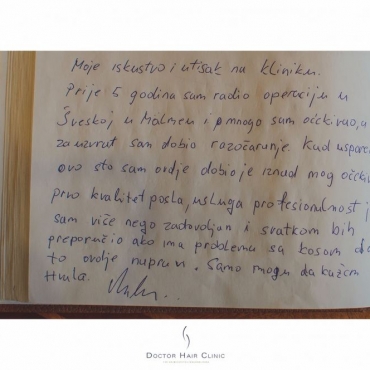 Moje iskustvo i utisak na kliniku.
Prije 5 godina sam radio operaciju u
Šveskoj u Malmeu i pmnogo sam očekivao, a
za uzvrat sam dobio razočaranje. Kad uspore
ovo sto sam ovdje dobio je iznad mog očekiv
prvo kvalitet posla, usluga profesionalnost j
sam više nego zadovoljan i svatkom bih
preporučio ako ima problema sa kosom da
to ovdje napravi. Samo mogu da kažem
Hvala.
DOCTOR HAIR CLINIC